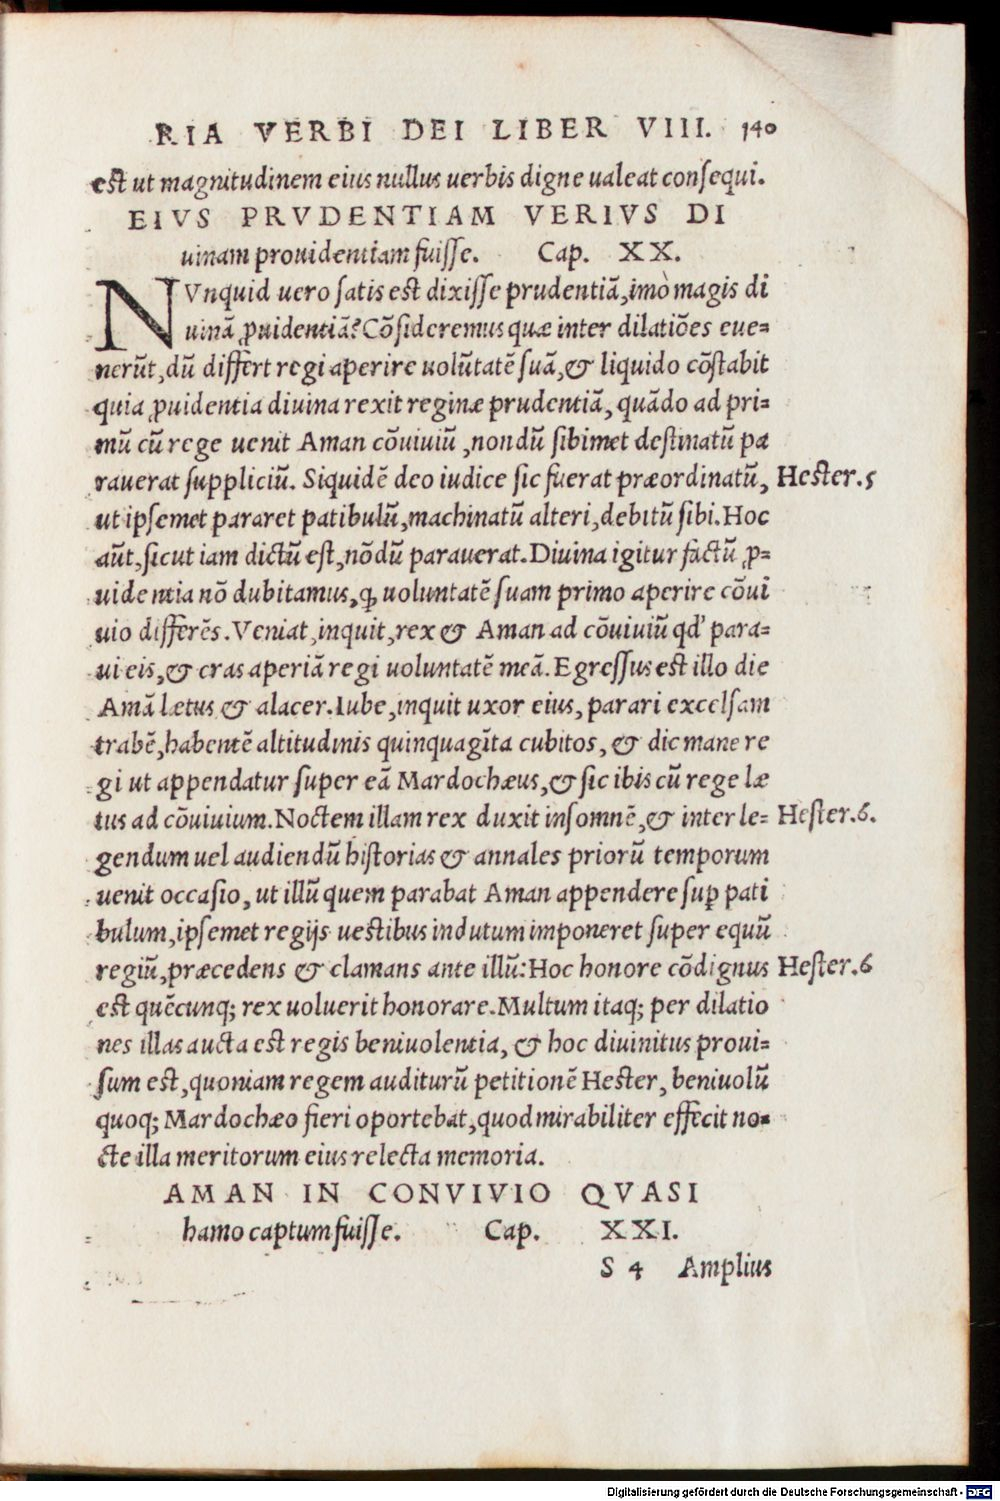 RIA VERBI DEI LIBER VIII. 140
est ut magnitudinem eius nullus uerbis digne ualeat consequi.
EIVS PRVDENTIAM VERIVS DI
uinam prouidentiam fuisse. Cap. XX.
NVnquid uero satis est dixisse prudentiã, imò magis di
uinã ꝓuidentiã? Cõsideremus quæ inter dilatiões eue=
nerũt, dũ differt regi aperire uolũtatẽ suã, & liquido cõstabit
quia ꝓuidentia diuina rexit reginæ prudentiã, quãdo ad pri=
mũ cũ rege uenit Aman cõuiuiũ, nondũ sibimet destinatũ pa
rauerat suppliciũ. Siquidẽ deo iudice sic fuerat præordinatũ, Hester. 5
ut ipsemet pararet patibulũ, machinatũ alteri, debitũ sibi. Hoc
aũt, sicut iam dictũ est, nõdũ parauerat. Diuina igitur factũ ꝓ=
uidentia nõ dubitamus, ꝙ uoluntatẽ suam primo aperire cõui
uio differẽs. Veniat, inquit, rex & Aman ad cõuiuiũ qd' para=
ui eis, & cras aperiã regi uoluntatẽ meã. Egressus est illo die
Amã lætus & alacer. Iube, inquit uxor eius, parari excelsam
trabẽ, habentẽ altitudinis quinquagĩta cubitos, & dic mane re
gi ut appendatur super eã Mardochæus, & sic ibis cũ rege læ
tus ad cõuiuium. Noctem illam rex duxit insomnẽ, & inter le= Hester. 6.
gendum uel audiendũ historias & annales priorũ temporum
uenit occasio, ut illũ quem parabat Aman appendere suꝑ pati
bulum, ipsemet regijs uestibus indutum imponeret super equũ
regiũ, præcedens & clamans ante illũ: Hoc honore cõdignus Hester. 6
est quẽcunq; rex uoluerit honorare. Multum itaq; per dilatio
nes illas aucta est regis beniuolentia, & hoc diuinitus proui=
sum est, quoniam regem auditurũ petitionẽ Hester, beniuolũ
quoq; Mardochæo fieri oportebat, quod mirabiliter effecit no=
cte illa meritorum eius relecta memoria.
AMAN IN CONVIVIO QVASI
hamo captum fuisse. Cap. XXI.
S 4 Amplius
Digitalisierung gefördert durch die Deutsche Forschungsgemeinschaft - DFG